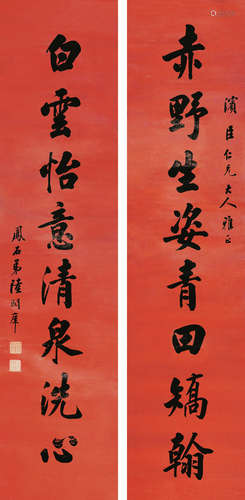 濱臣仁兄大人雅正
赤野生姿青田矯翰
白雲怡意清泉洗心
鳳石弟陸潤庠